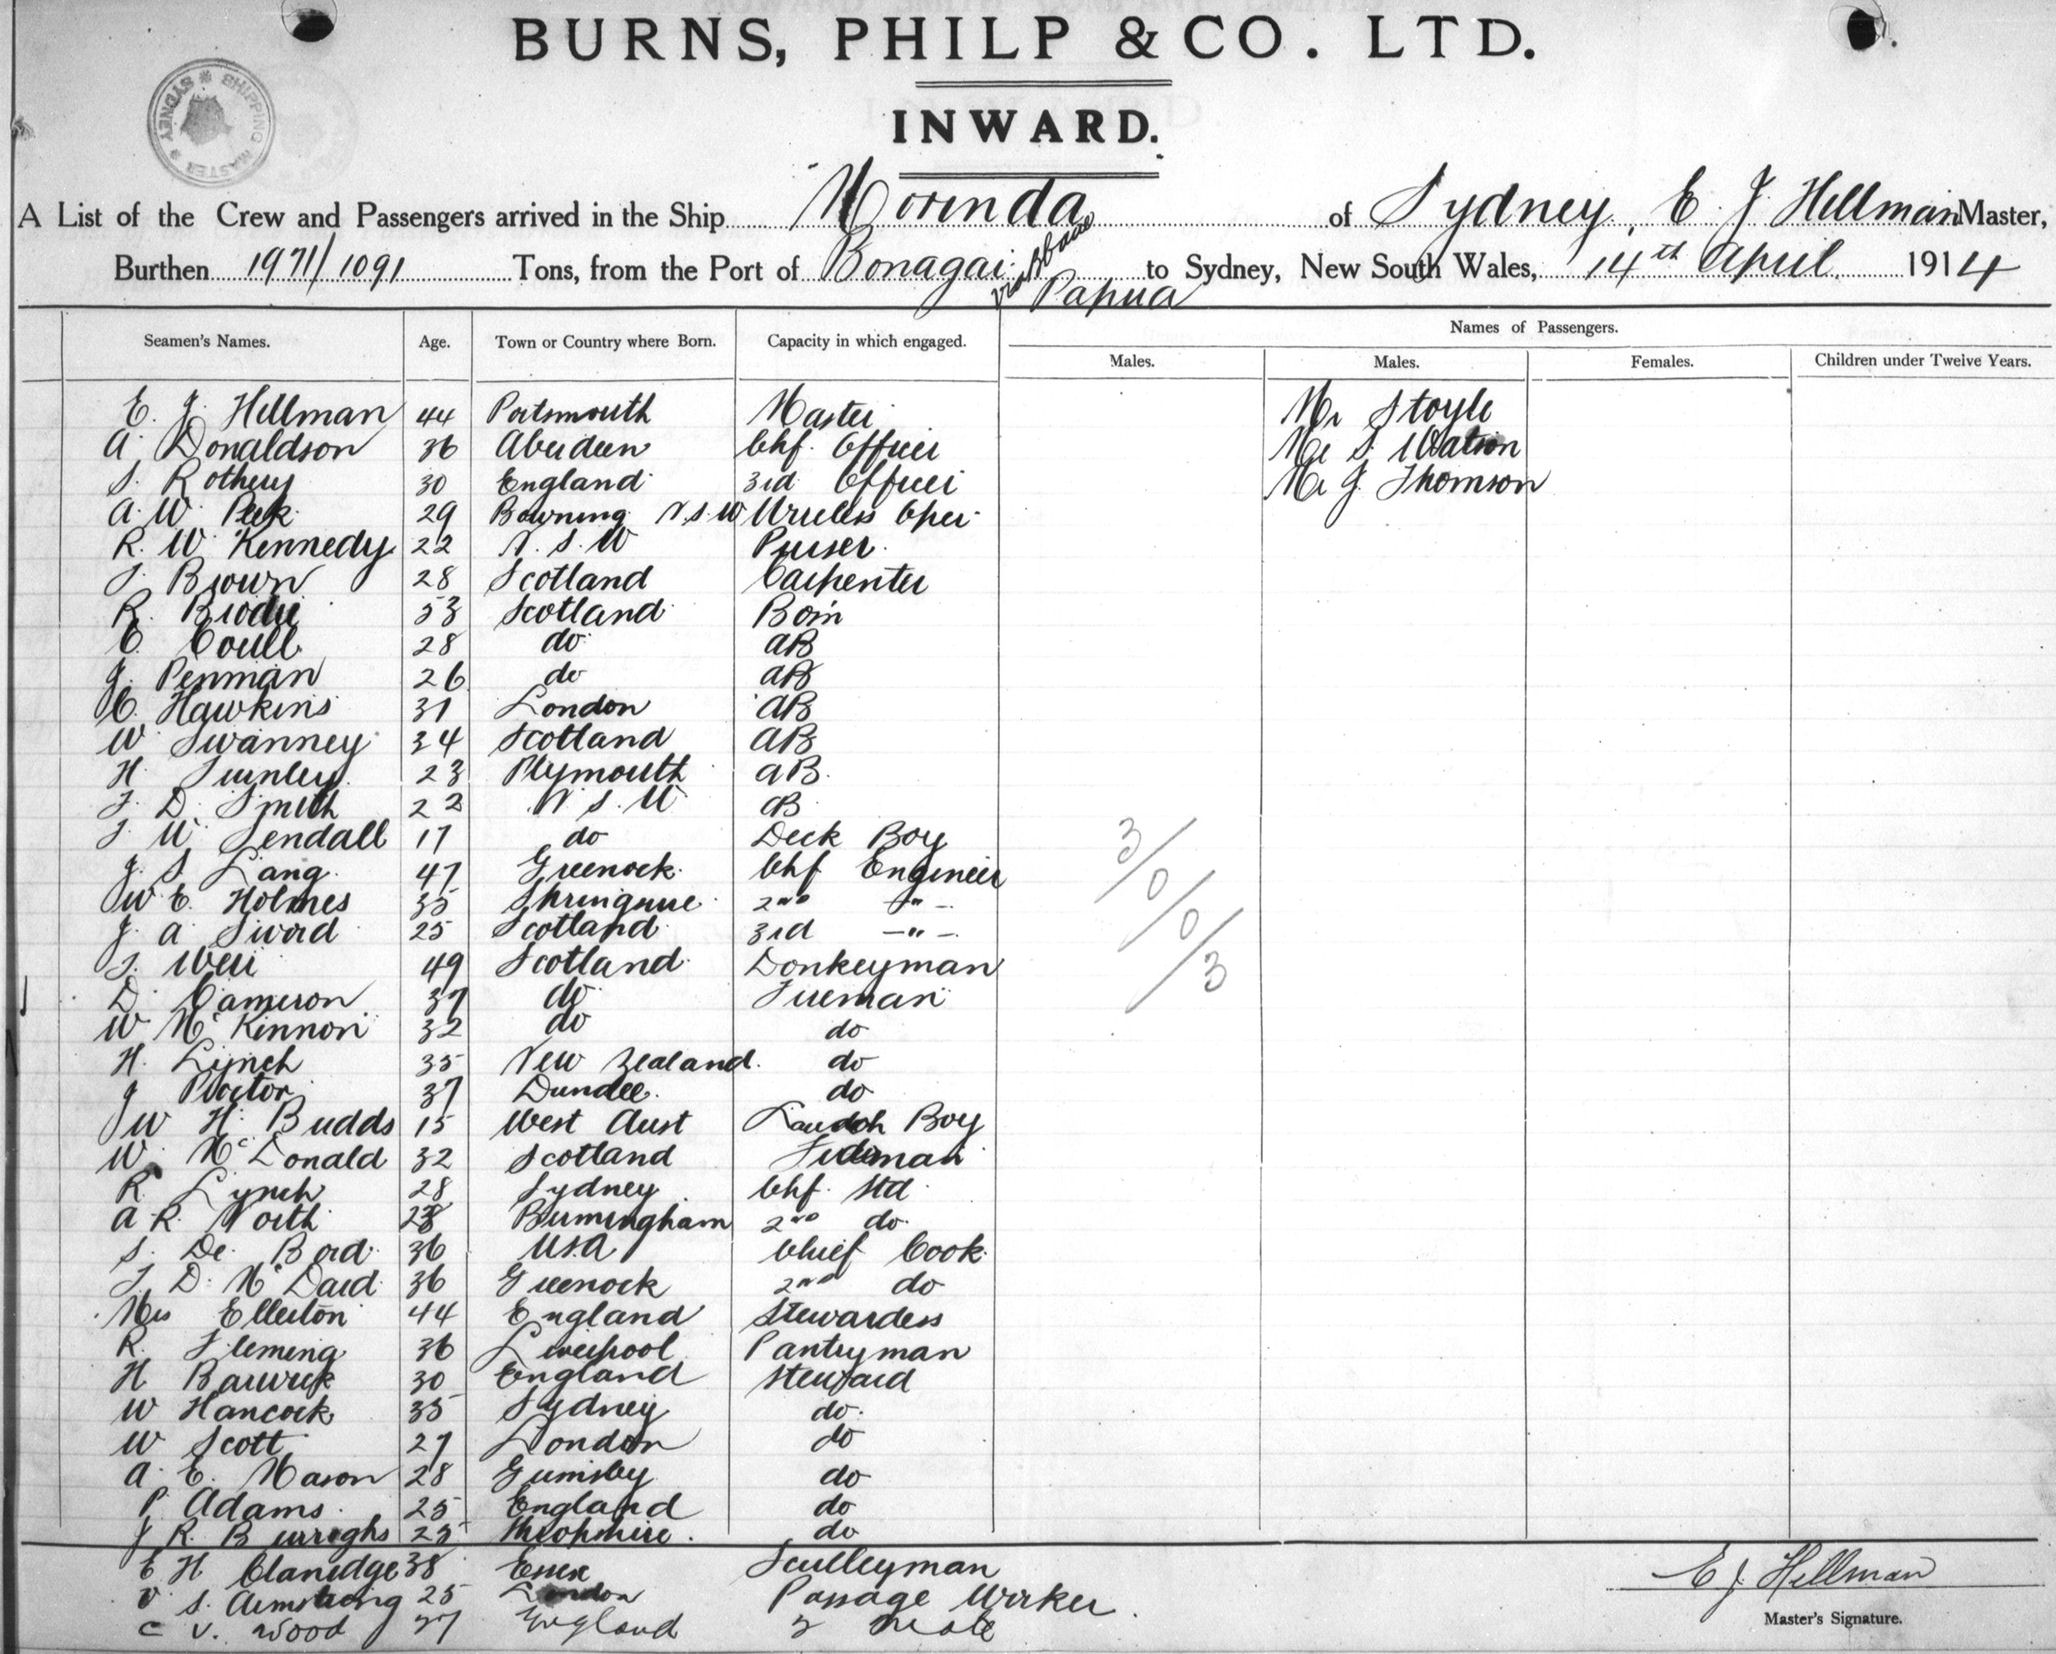 BURNS, PHILP & CO. LTD.
INWARD.
SHIPPING MASTER * SYDNEY *
A List of the Crew and Passengers arrived in the Ship Morinda of Sydney, E. J. Hillman Master,
Burthen 1971/1091 Tons, from the Port of Bonagai via Bbane Papua to Sydney, New South Wales, 14th April 1914
Seamen's Names. Age. Town or Country where Born. Capacity in which engaged. Names of Passengers.
Males. Males. Females. Children under Twelve Years.
E. J. Hillman 44 Portsmouth Master Mr Stoyle
A. Donaldson 36 Aberdeen Chf. Officer Mr S. Watson
S. Rothery 30 England 3rd Officer Mr J. Thomson
A. W. Peek 29 Bowning N.S.W Wireless Oper
R. W. Kennedy 22 N.S.W Purser
J. Brown 28 Scotland Carpenter
R. Brodie 53 Scotland Bosn
C. Coull 28 do AB
J. Penman 26 do AB
C. Hawkins 31 London AB
W. Swanney 34 Scotland AB
H. 23 Plymouth AB
J. D. Smith 22 N.S.W AB
J. W. Sendall 17 do Deck Boy
J. S. Lang 47 Greenock Chf Engineer
W. E. Holmes 35 2nd -"-
J. A. Sword 25 Scotland 3rd -"-
J. Weir 49 Scotland Donkeyman
D. Cameron 37 do Fireman
W. McKinnon 32 do do
H. Lynch 35 New Zealand do
J Proctor 37 Dundee do
W. H. Budds 15 West Aust Boy
W. McDonald 32 Scotland Fireman
R. Lynch 28 Sydney Chf. Std
A. R. North 28 Birmingham 2nd do
S. De Bord 36 USA Chief Cook
J. D. McDaid 36 Greenock 2nd do
Mrs Ellerton 44 England Stewardess
R. Fleming 36 Liverpool Pantryman
H Barwick 30 England Steward
W Hancock 35 Sydney do
W Scott 27 London do
A. E. Mason 28 Grimsby do
P. Adams 25 England do
J. R. Burroghs 25 Shropshire do
E H Claridge 38 Essex Sculleyman
V. S. Armstrong 25 London Passage Worker
C V. Wood 27 England 2 Mate
3/0/0/3
E J. Hillman
Master's Signature.